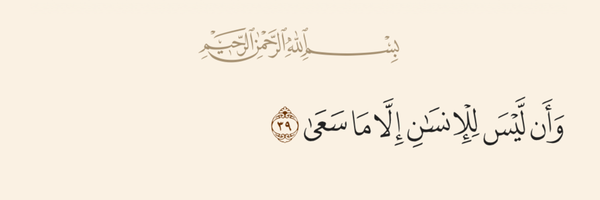 بِسْمِ اللهِ الرَّحْمٰنِ الرَّحِيْمِ
وَأَن لَّيْسَ لِلْإِنسَـٰنِ إِلَّا مَا سَعَىٰ ٣٩